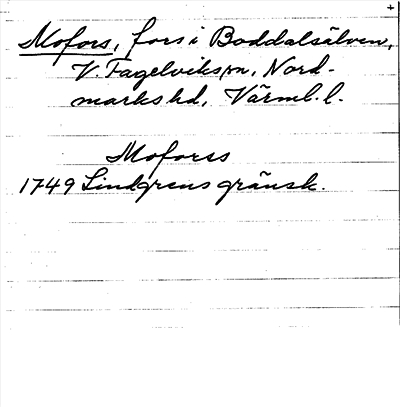 Mofors, fors i Boddalsälven,
V. Fågelviks sn, Nord-
marks hd, Värml. l.
Moforss
1749 Lindgrens gränsk.